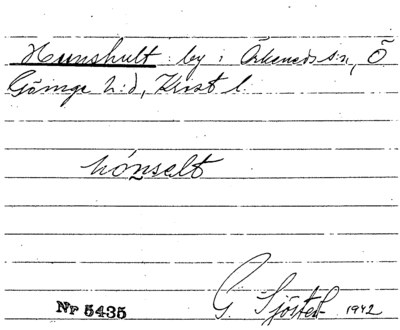 Hunshult by i Örkeneds s:n, Ö
Göinge h:d, Krist l.
hónselt
Nr 5435
G. Sjöstedt 1942